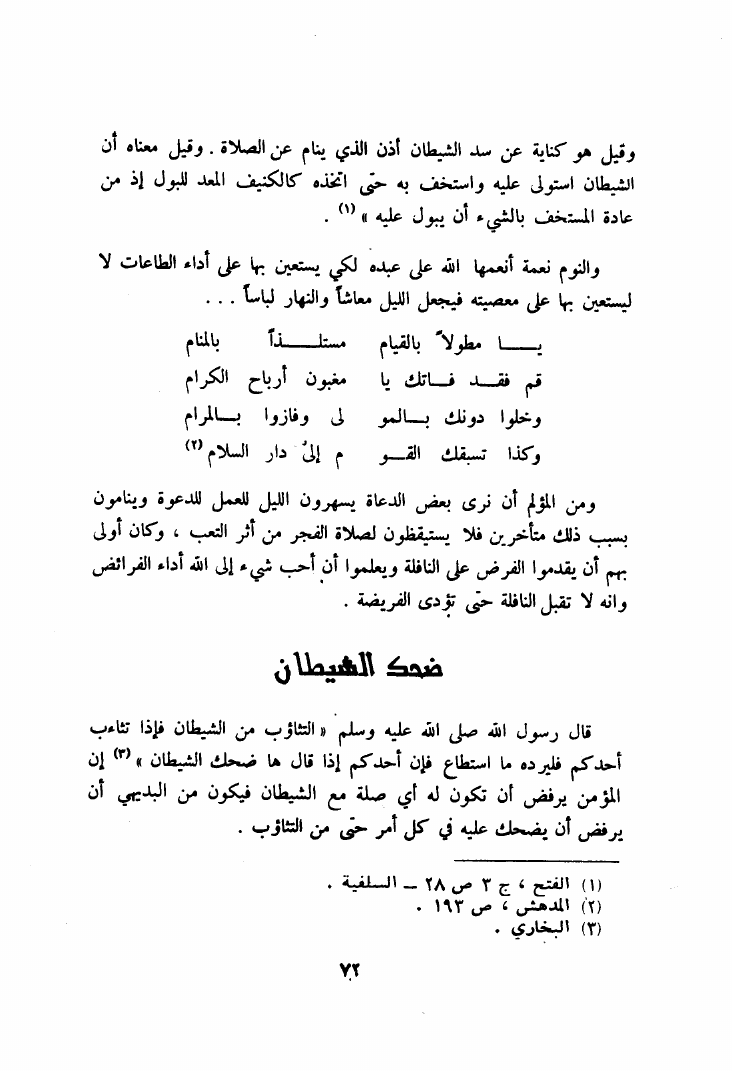 وقيل هو كناية عن سد الشيطان أذن الذي ينام عن الصلاة . وقيل معناه أن
الشيطان استولى عليه واستخف به حتى اتخذه كالكنيف المعد للبول إذ من
عادة المستخف بالشيء أن يبول عليه » (١) .
والنوم نعمة أنعمها الله على عبده لكي يستعين بها على أداء الطاعات لا
ليستعين بها على معصيته فيجعل الليل معاشاً والنهار لباساً . . .
يـــا مطولاً بالقيام مستلـــذاً بالمنام
قم فقـــد فـــاتك يا مغبون أرباح الكرام
وخلوا دونك بـــالمو لى وفازوا بـــالمرام
وكذا تسبقك القـــو م إلى دار السلام (٢)
ومن المؤلم أن نرى بعض الدعاة يسهرون الليل للعمل للدعوة وينامون
بسبب ذلك متأخرين فلا يستيقظون لصلاة الفجر من أثر التعب ، وكان أولى
بهم أن يقدموا الفرض على النافلة ويعلموا أن أحب شيء إلى الله أداء الفرائض
وانه لا تقبل النافلة حتى تؤدى الفريضة .
ضحك الشيطان
قال رسول الله صلى الله عليه وسلم « التثاؤب من الشيطان فإذا تثاءب
أحدكم فليرده ما استطاع فإن أحدكم إذا قال ها ضحك الشيطان » (٣) إن
المؤمن يرفض أن تكون له أي صلة مع الشيطان فيكون من البديهي أن
يرفض أن يضحك عليه في كل أمر حتى من التثاؤب .
(١) الفتح ، ج ٣ ص ٢٨ ــ السلفية .
(٢) المدهش ، ص ١٩٣ .
(٣) البخاري .
٧٢